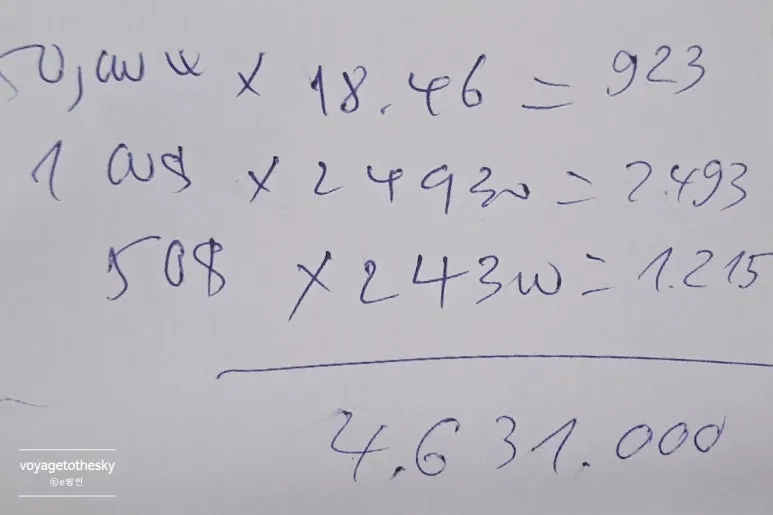 50,000 ₩ × 18.46 = 923
100$ × 24930 = 2.493
50$ × 24300 = 1.215
4.631.000
voyagetothesky
©e병언